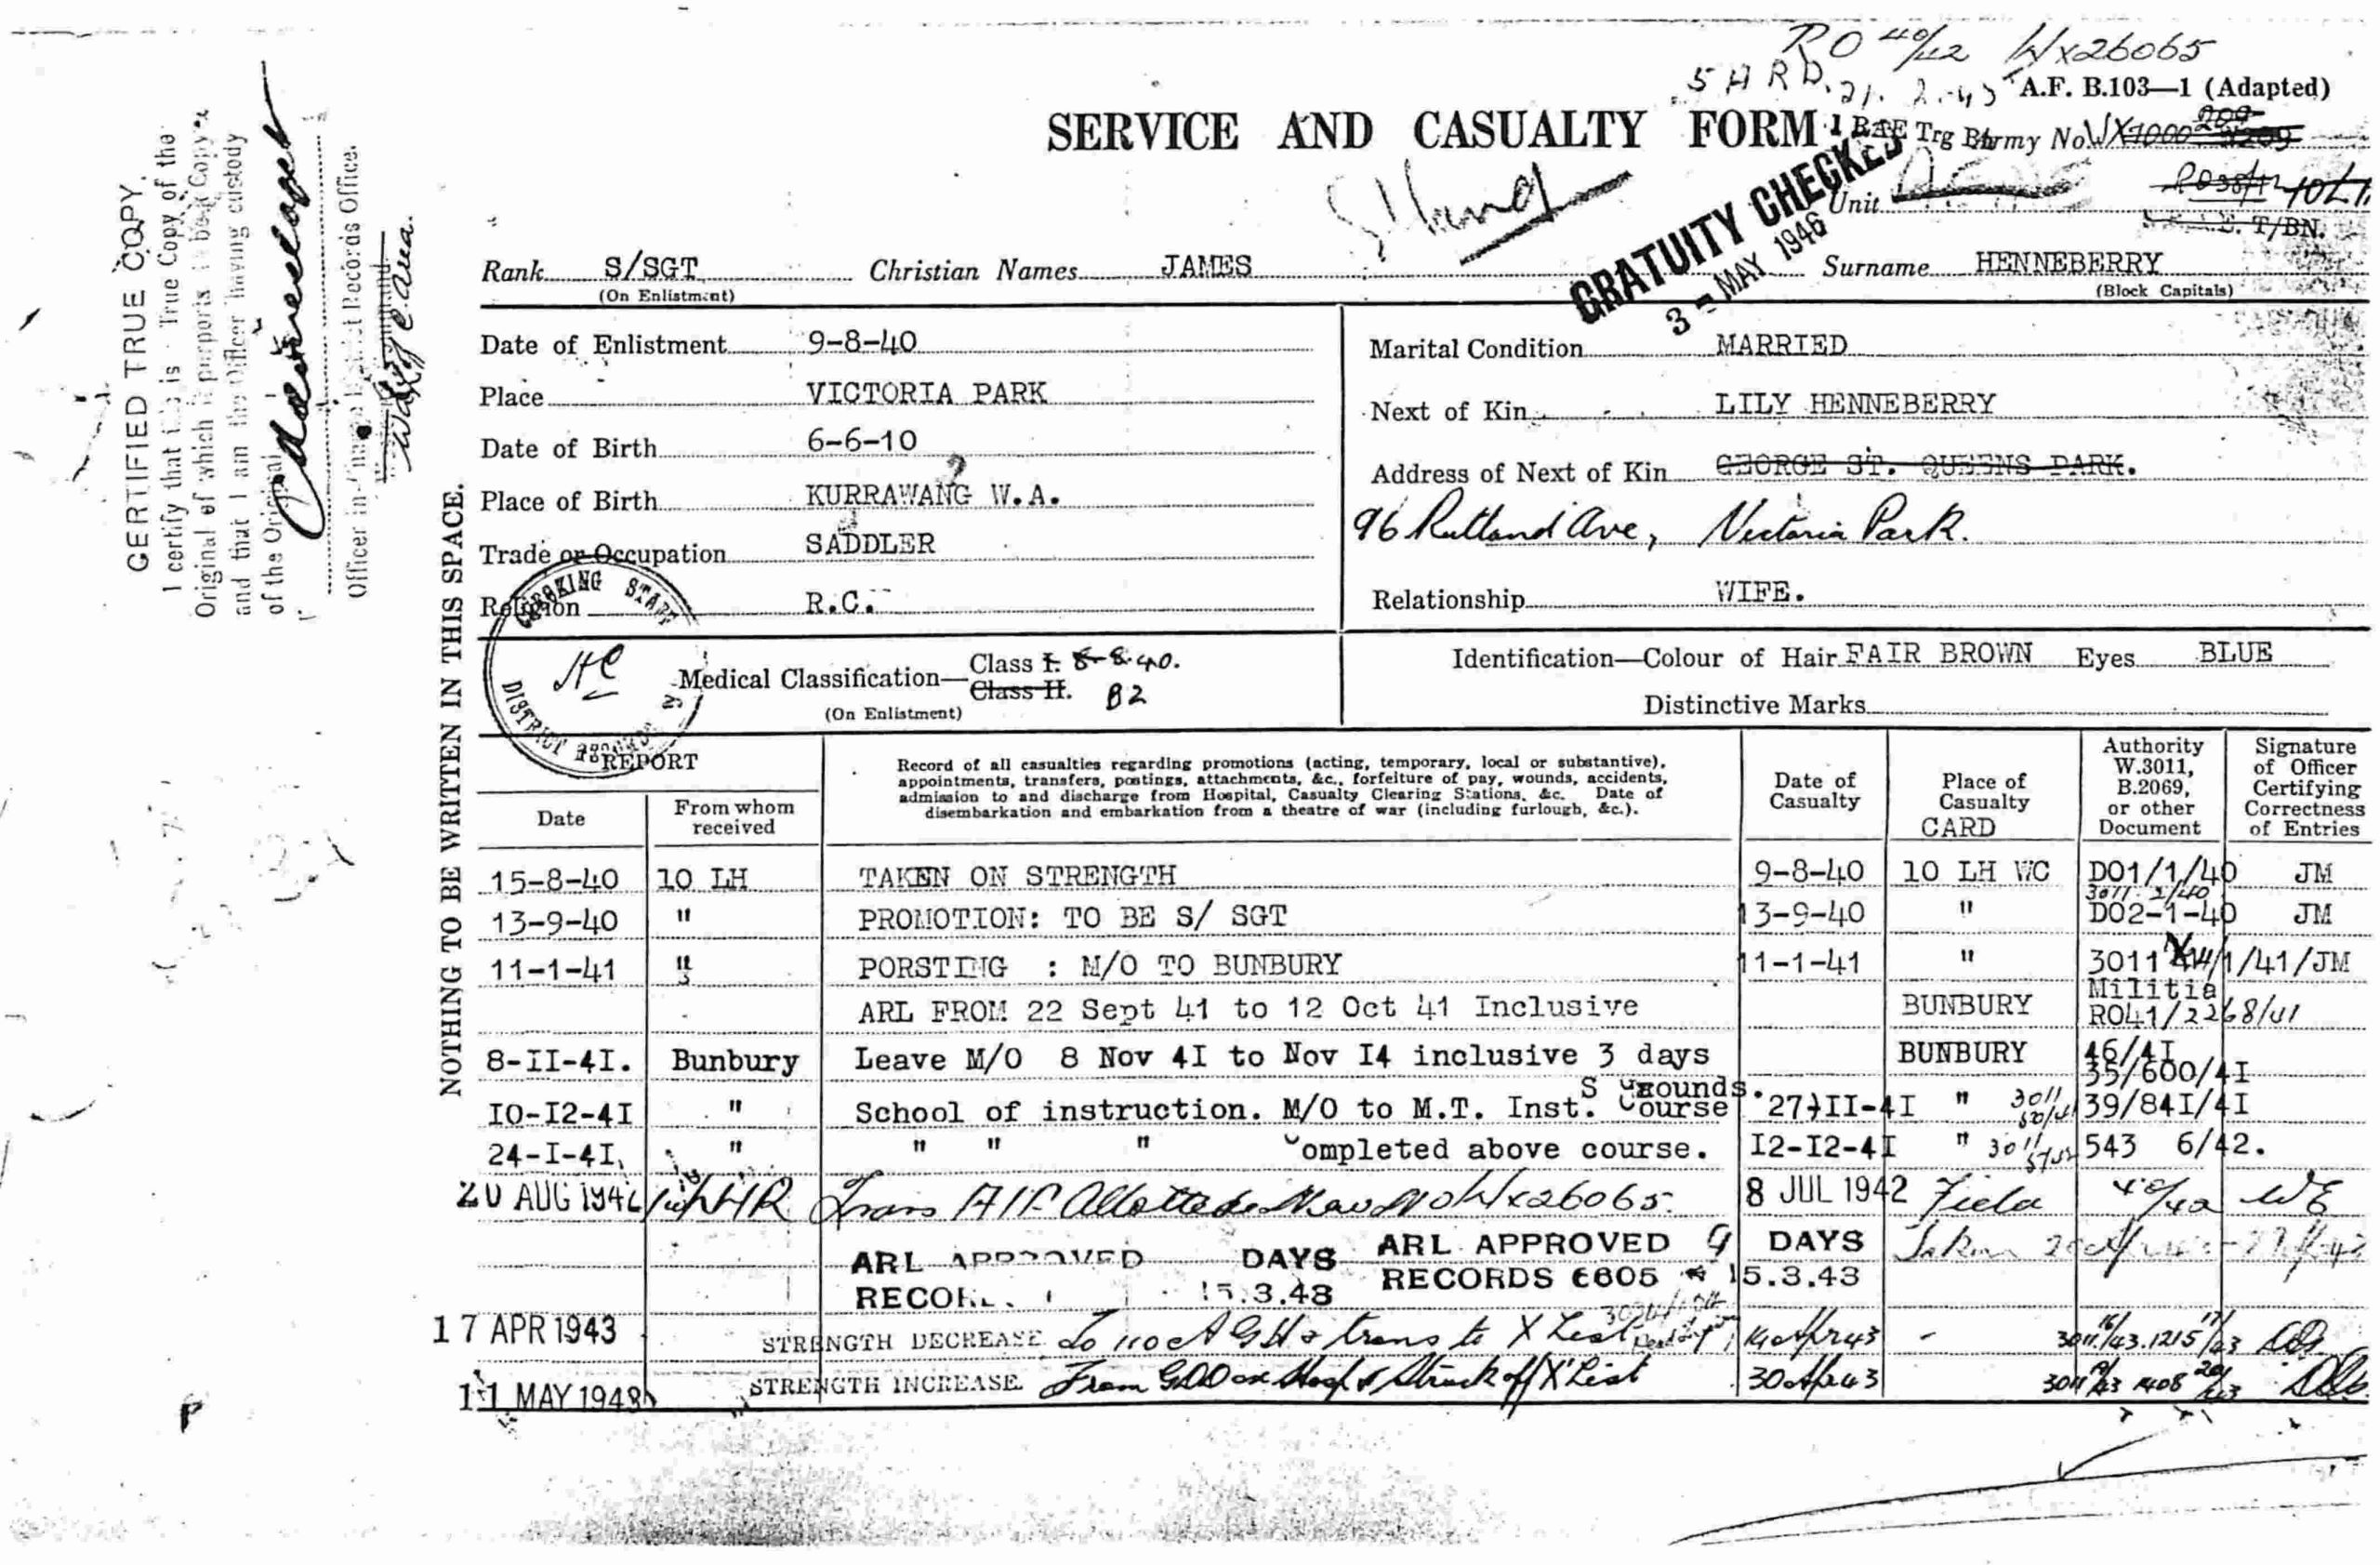 RO 40/42 Wx26065
5 A R D. 21. 2. 43 A.F. B.103—1 (Adapted)
SERVICE AND CASUALTY FORM 1 RAE Trg Bn Army No. WX1000
GRATUITY CHECKED
3 - MAY 1946
Unit 10 L.
T/BN.
Rank S/SGT Christian Names JAMES Surname HENNEBERRY
(On Enlistment) (Block Capitals)
CERTIFIED TRUE COPY.
I certify that this is True Copy of the
Original of which it purports to be a Copy
and that I am the Officer having custody
of the Original
Officer in Charge District Records Office.
NOTHING TO BE WRITTEN IN THIS SPACE.
Date of Enlistment 9-8-40
Place VICTORIA PARK
Date of Birth 6-6-10
Place of Birth KURRAWANG W.A.
Trade or Occupation SADDLER
Religion R.C.
Marital Condition MARRIED
Next of Kin LILY HENNEBERRY
Address of Next of Kin GEORGE ST. QUEENS PARK.
96 Rutland Ave, Victoria Park.
Relationship WIFE.
CHECKING STAFF
DISTRICT RECORDS
Medical Classification— Class I. 8-8-40.
Class II. B2
(On Enlistment)
Identification—Colour of Hair FAIR BROWN Eyes BLUE
Distinctive Marks
REPORT
Date
From whom received
Record of all casualties regarding promotions (acting, temporary, local or substantive),
appointments, transfers, postings, attachments, &c., forfeiture of pay, wounds, accidents,
admission to and discharge from Hospital, Casualty Clearing Stations, &c. Date of
disembarkation and embarkation from a theatre of war (including furlough, &c.).
Date of Casualty
Place of Casualty
CARD
Authority W.3011, B.2069, or other Document
Signature of Officer Certifying Correctness of Entries
15-8-40 10 LH TAKEN ON STRENGTH 9-8-40 10 LH WC DO1/1/40 JM
3011 2/40
13-9-40 " PROMOTION: TO BE S/ SGT 13-9-40 " DO2-1-40 JM
11-1-41 " PORSTING : M/O TO BUNBURY 11-1-41 " 3011 /1/41/JM
Militia
ARL FROM 22 Sept 41 to 12 Oct 41 Inclusive BUNBURY RO41/2268/41
8-II-4I. Bunbury Leave M/O 8 Nov 4I to Nov I4 inclusive 3 days BUNBURY 46/4I
35/600/4I
IO-I2-4I " School of instruction. M/O to M.T. Inst. Course 27-II-4I " 3011 39/84I/4I
24-I-4I, " " " " ompleted above course. I2-I2-4I " 3011 543 6/42.
20 AUG 1942 Trans AIF Allotted New No Wx26065. 8 JUL 1942 Field 40/42 WE
ARL APPROVED DAYS ARL APPROVED 9 DAYS
RECOR 15.3.43 RECORDS 6605 15.3.43
17 APR 1943 STRENGTH DECREASE To 110 AGH & trans to X List 14 Apr 43 - 3011 /43.1215
11 MAY 1943 STRENGTH INCREASE From Hosp & Struck off 'X' List 30 Apr 43 3011 1408